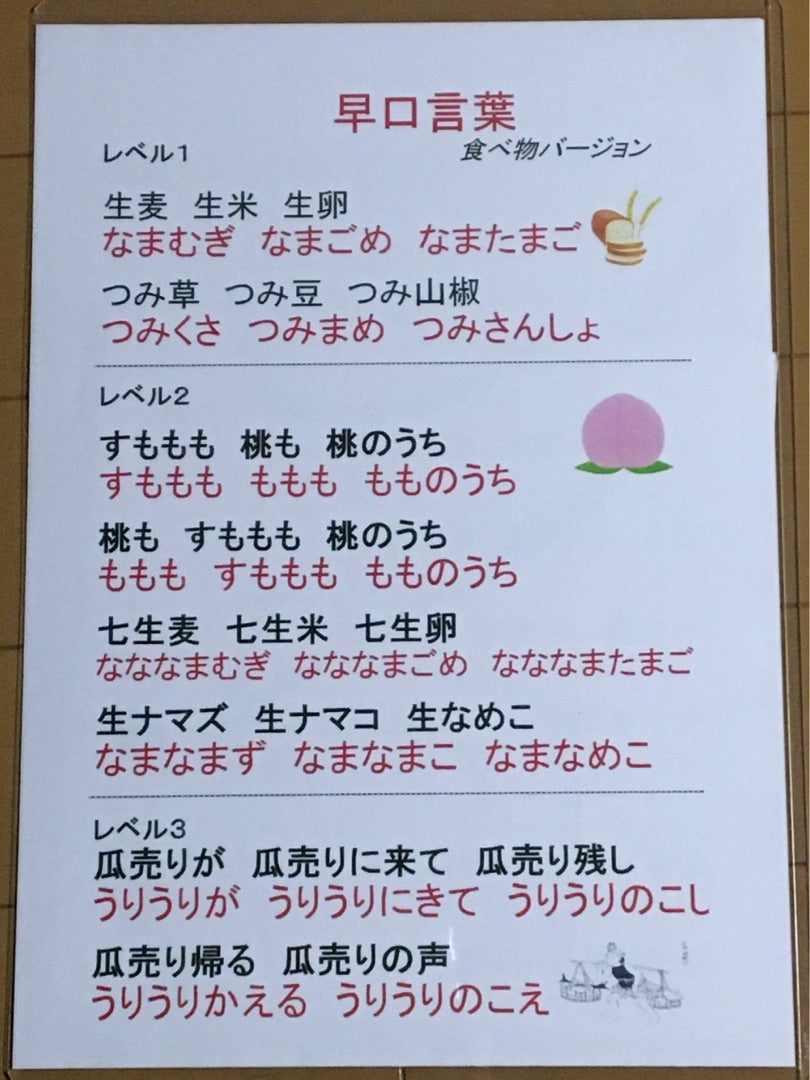 早口言葉
レベル1
食べ物バージョン
生麦 生米 生卵
なまむぎ なまごめ なまたまご
つみ草 つみ豆 つみ山椒
つみくさ つみまめ つみさんしょ
レベル2
すももも 桃も 桃のうち
すももも ももも もものうち
桃も すももも 桃のうち
ももも すももも もものうち
七生麦 七生米 七生卵
なななまむぎ なななまごめ なななまたまご
生ナマズ 生ナマコ 生なめこ
なまなまず なまなまこ なまなめこ
レベル3
瓜売りが 瓜売りに来て 瓜売り残し
うりうりが うりうりにきて うりうりのこし
瓜売り帰る 瓜売りの声
うりうりかえる うりうりのこえ